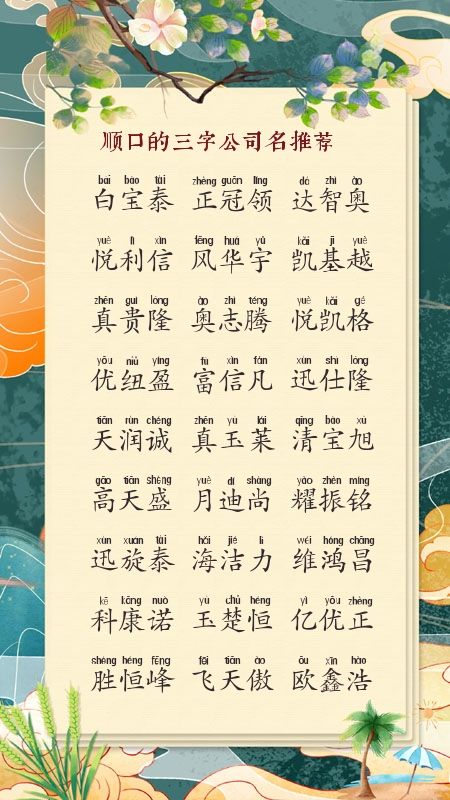 顺口的三字公司名推荐
bái bǎo tài zhèng guān lǐng dá zhì ào
白宝泰 正冠领 达智奥
yuè lì xìn fēng huá yǔ kǎi jī yuè
悦利信 风华宇 凯基越
zhēn guì lóng ào zhì téng yuè kǎi gé
真贵隆 奥志腾 悦凯格
yōu niǔ yíng fù xìn fán xùn shì lóng
优纽盈 富信凡 迅仕隆
tiān rùn chéng zhēn yù lái qīng bǎo xù
天润诚 真玉莱 清宝旭
gāo tiān shèng yuè dí shàng yào zhèn míng
高天盛 月迪尚 耀振铭
xùn xuán tài hǎi jié lì wéi hóng chāng
迅旋泰 海洁力 维鸿昌
kē kāng nuò yù chǔ héng yì yōu zhèng
科康诺 玉楚恒 亿优正
shèng héng fēng fēi tiān ào ōu xīn hào
胜恒峰 飞天傲 欧鑫浩